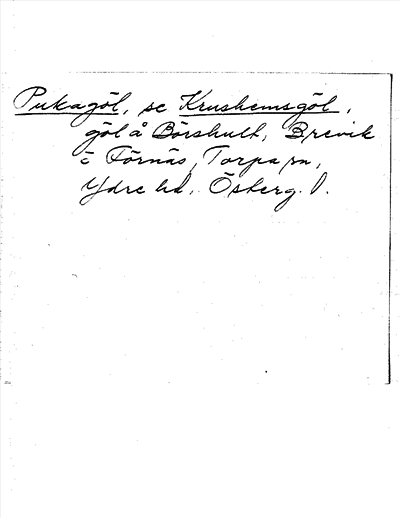 Pukagöl, se Krushemsgöl,
göl å Börshult, Brevik
o Förnäs, Torpa sn,
Ydre hd, Österg. l.